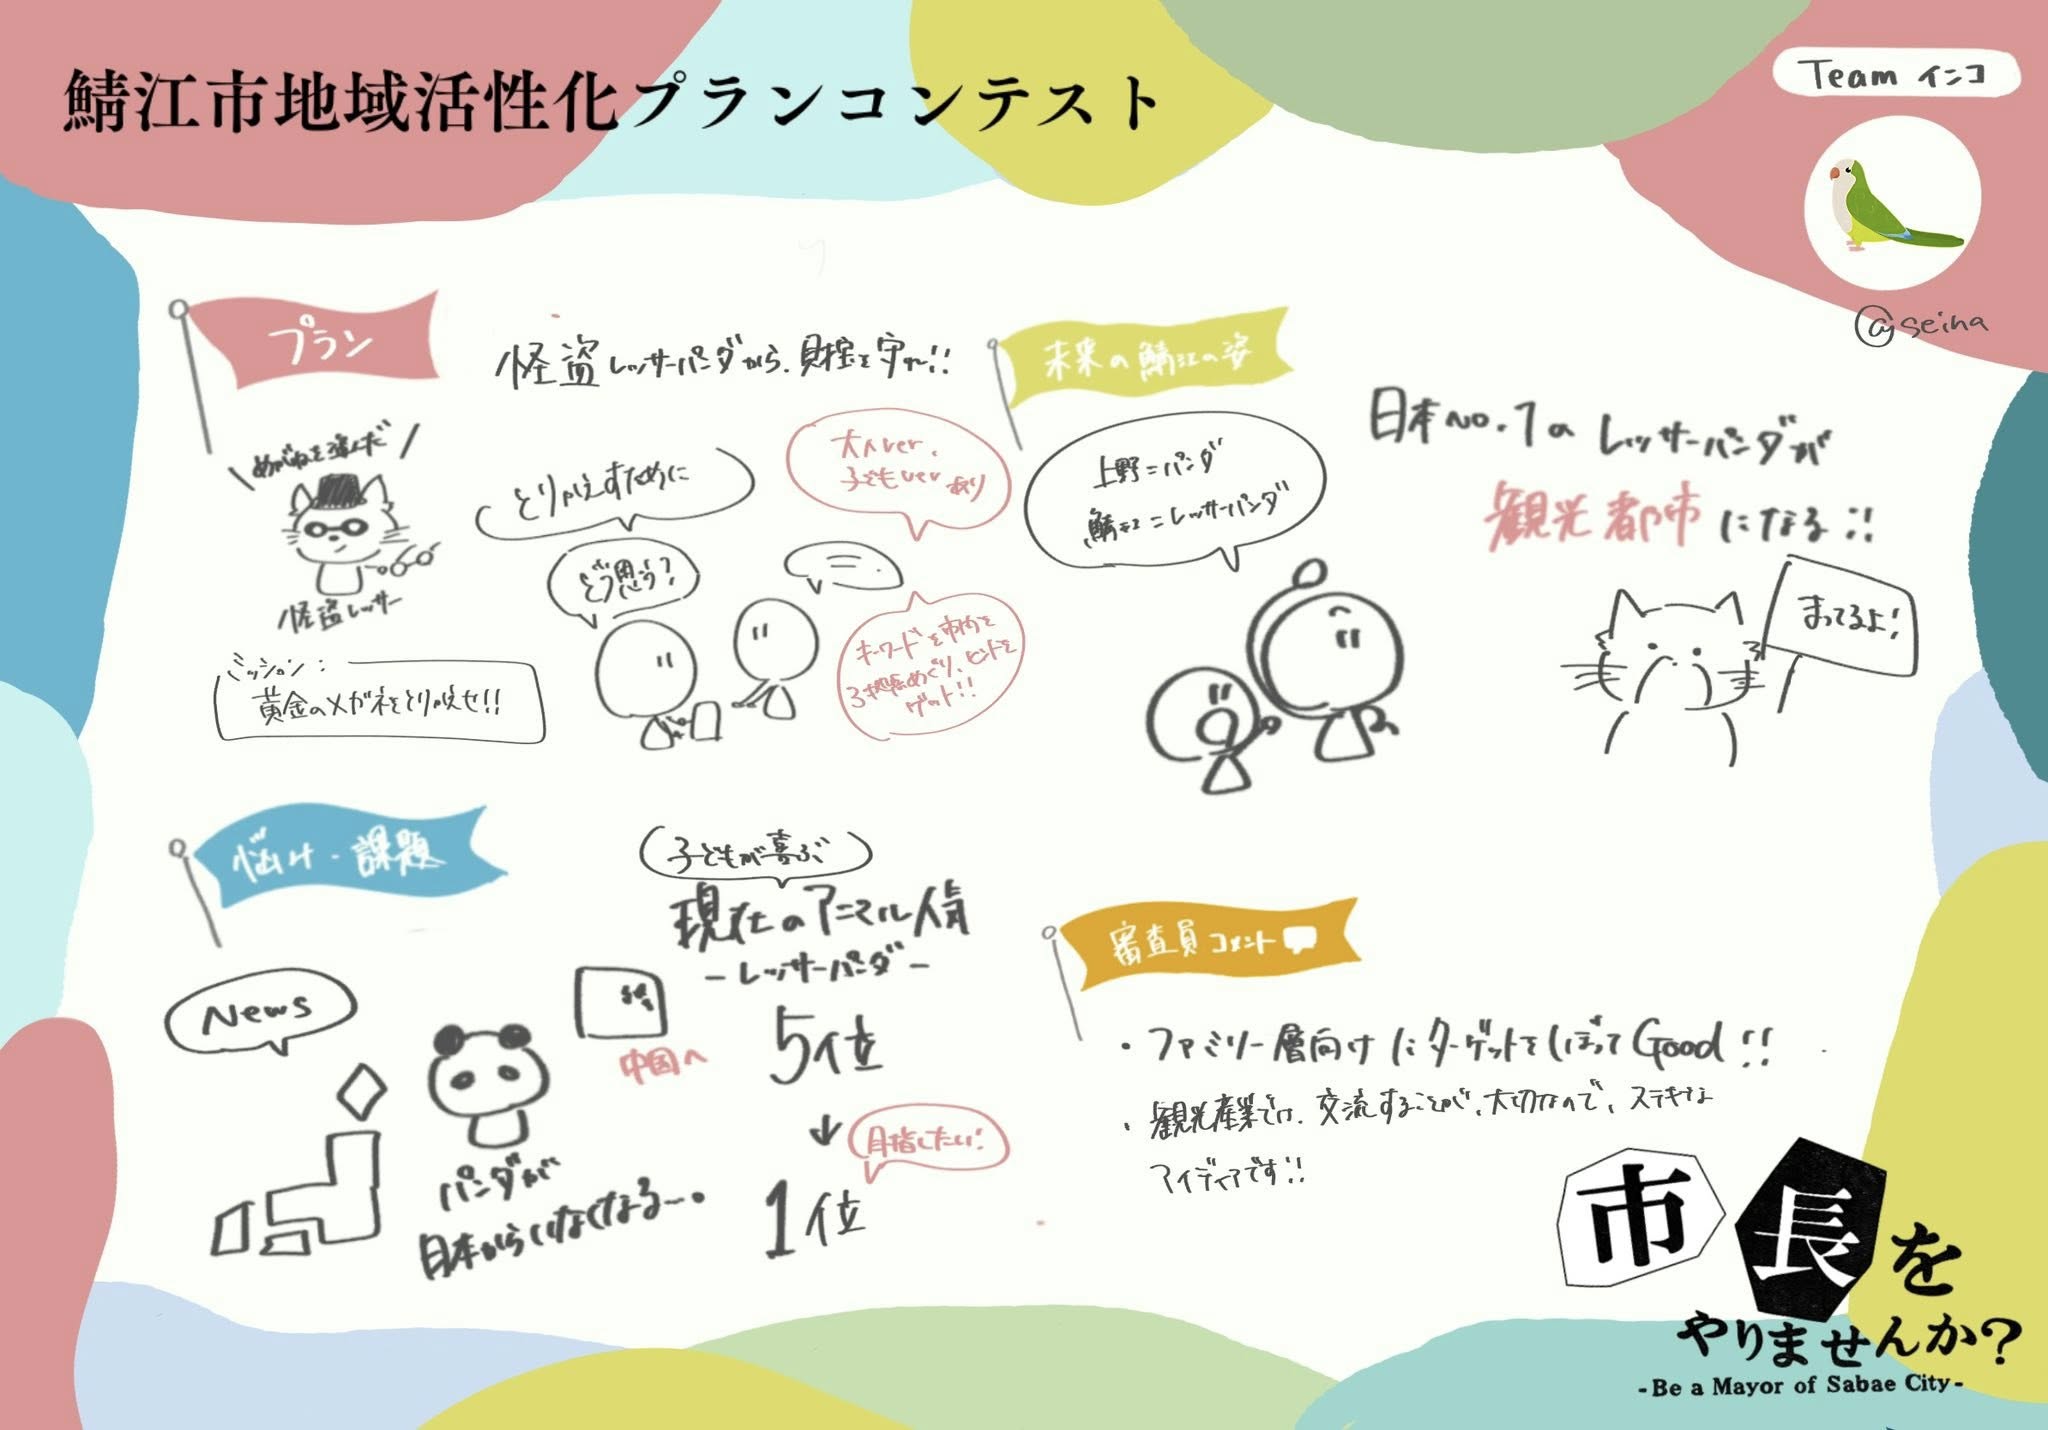 鯖江市地域活性化プランコンテスト
Team インコ
@seina
プラン
怪盗レッサーパンダから、財宝を守れ!!
めがねを盗んだ
怪盗レッサー
ミッション:
黄金のメガネをとり返せ!!
とりかえすために
どう思う?
大人ver.
子どもver あり
キーワードを市内を
3地点めぐり、ヒントを
ゲット!!
未来の鯖江の姿
上野=パンダ
鯖江=レッサーパンダ
日本No.1のレッサーパンダが
観光都市になる!!
まってるよ!
悩み・課題
News
パンダが
日本からいなくなる〜。
中国へ
子どもが喜ぶ
現在のアニマル人気
-レッサーパンダ-
5位
↓
目指したい!
1位
審査員コメント
・ファミリー層向けにターゲットをしぼってGood!!
・観光産業では、交流することが、大切なので、ステキな
アイディアです!!
市長を
やりませんか?
-Be a Mayor of Sabae City-